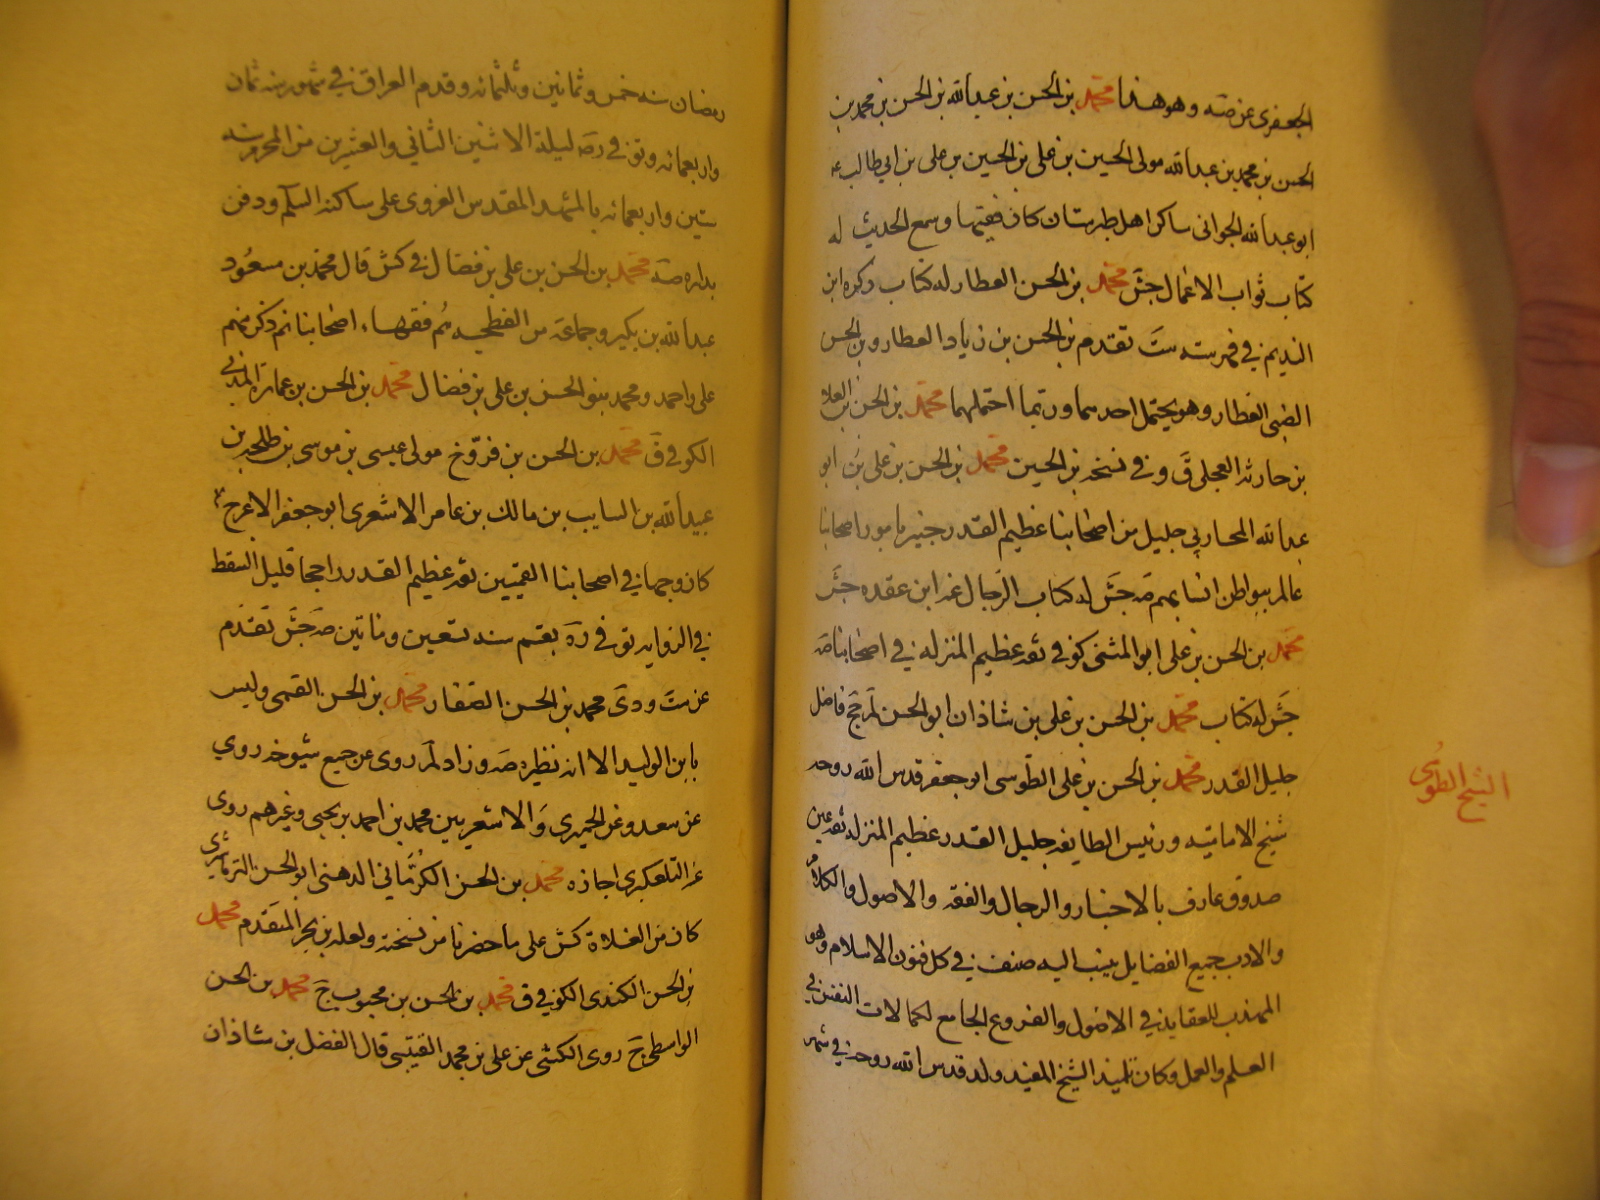 الجعفرى عن صَه وهو هذا محمد بن الحسن بن عبدالله بن الحسن بن محمد بن
الحسن بن محمد بن عبدالله مولى الحسين بن على بن الحسين بن على بن ابي طالب
ابو عبدالله الجوانى ساكن اهل طبرستان كان فقيها وسمع الحديث له
كتاب ثواب الاعمال جَشَ محمد بن الحسن العطار له كتاب ذكره ابن
النديم في فهرسته سَت تقدم بن الحسن بن زياد العطار وبن الحسن
الضبى العطار وهو يحتمل احدهما وربما احتملهما محمد بن الحسن بن العلا
بن حارثه العجلى قَ وفي نسخه بن الحسين محمد بن الحسن بن على بن ابو
عبدالله المحاربي جليل من اصحابنا عظيم القدر خبير بامور اصحابنا
عالم ببواطن انسابهم صَه جَش له كتاب الرجال عنه ابن عقده جَش
محمد بن الحسن بن على ابو المثنى كوفي ثقه عظيم المنزله في اصحابنا صَه
جَش له كتاب محمد بن الحسن بن على بن شاذان ابو الحسن لَم جَخ فاضل
جليل القدر محمد بن الحسن بن على الطوسى ابو جعفر قدس الله روحه
الشيخ الطوسى
شيخ الاماميه ورئيس الطايفه جليل القدر عظيم المنزله ثقه عين
صدوق عارف بالاخبار والرجال والفقه والاصول والكلام
والادب جميع الفضايل ينسب اليه صنف في كل فنون الاسلام وهو
المهذب للعقايد في الاصول والفروع الجامع لكمالات النفس في
العلم والعمل وكان تلميذ الشيخ المفيد ولد قدس الله روحه في شهر
رمضان سنه خمس وثمانين وثلثمائه وقدم العراق في شهور سنه ثمان
واربعمائه وتوفي رضَ ليلة الاثنين الثاني والعشرين من المحرم سنه
ستين واربعمائه بالمشهد المقدس الغروى على ساكنه السلم ودفن
بداره صَه محمد بن الحسن بن على بن فضال في كش قال محمد بن مسعود
عبدالله بن بكير وجماعة من الفطحيه هم فقهاء اصحابنا ثم ذكر منهم
على واحمد ومحمد بنو الحسن بن على بن فضال محمد بن الحسن بن عمارة المدني
الكوفي قَ محمد بن الحسن بن فروخ مولى عيسى بن موسى بن طلحه بن
عبيدالله بن السايب بن مالك بن عامر الاشعرى ابو جعفر الاعرج
كان وجها في اصحابنا القميين ثقه عظيم القدر راجحا قليل السقط
في الروايه توفي رَه بقم سنه تسعين ومائتين صَه جَش تقدم
عن سَت ودَى محمد بن الحسن الصفار محمد بن الحسن القمى وليس
بابن الوليد الا انه نظيره صَه وزاد لَم روى عن جميع شيوخه روى
عن سعد وعن الحميرى وَالاشعريين محمد بن احمد بن يحيى وغيرهم روى
عنه التلعكبرى اجازه محمد بن الحسن الكرماني الدهنى ابو الحسن النرماشيرى
كان من الغلاة كش على ما حضرنا من نسخته ولعله بن بحر المتقدم محمد
بن الحسن الكندى الكوفي ق محمد بن الحسن بن محبوب جَ محمد بن الحسن
الواسطى جَ روى الكشى عن على بن محمد القتيبى قال الفضل بن شاذان